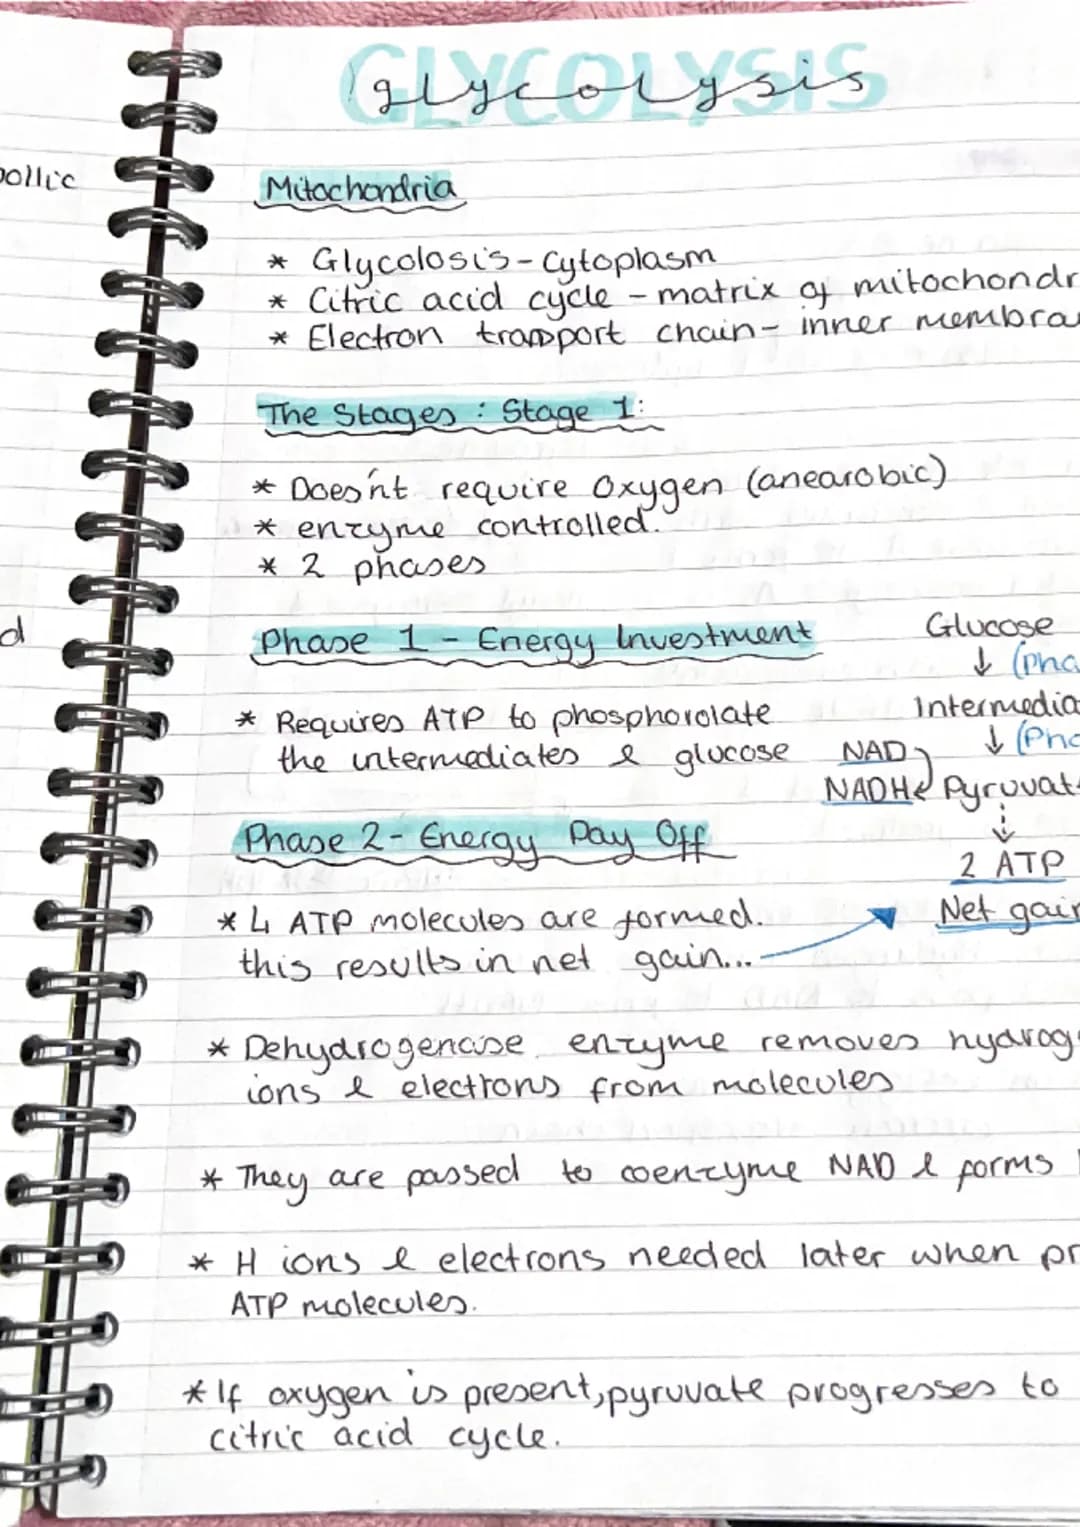 GLYCOLYSIS
glycolysis
ollic
Mitochondria
* Glycolosis - Cytoplasm
* Citric acid cycle - matrix of mitochondr
* Electron transport chain - inner membra
The Stages : Stage 1:
* Does'nt require Oxygen (anearobic)
* enzyme controlled.
* 2 phases
d
Phase 1 - Energy Investment
Glucose
↓ (Pha
* Requires ATP to phosphorolate
Intermedia
the intermediates & glucose
NAD
↓ (Pha
NADH Pyruvat
Phase 2 - Energy Pay Off
2 ATP
* 4 ATP molecules are formed.
Net gain
this results in net gain...
* Dehydrogenase enzyme removes hydroge
ions & electrons from molecules
* They are passed to coenzyme NAD & forms
* H ions & electrons needed later when pr
ATP molecules.
* If oxygen is present, pyruvate progresses to
citric acid cycle.